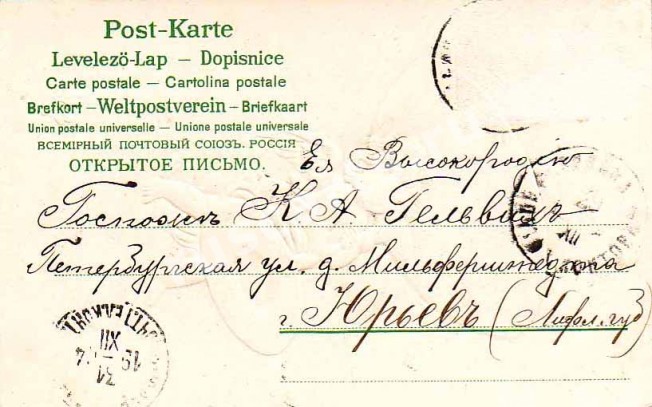 Post-Karte
Levelezö-Lap — Dopisnice
Carte postale — Cartolina postale
Brefkort – Weltpostverein – Briefkaart
Union postale universelle — Unione postale universale
ВСЕМІРНЫЙ ПОЧТОВЫЙ СОЮЗЪ. РОССІЯ
ОТКРЫТОЕ ПИСЬМО.
Ея Высокородію
Госпожѣ К. А. Гельвихъ
Петербургская ул. д.
г. Юрьевъ (Лифл. губ)
XII
31